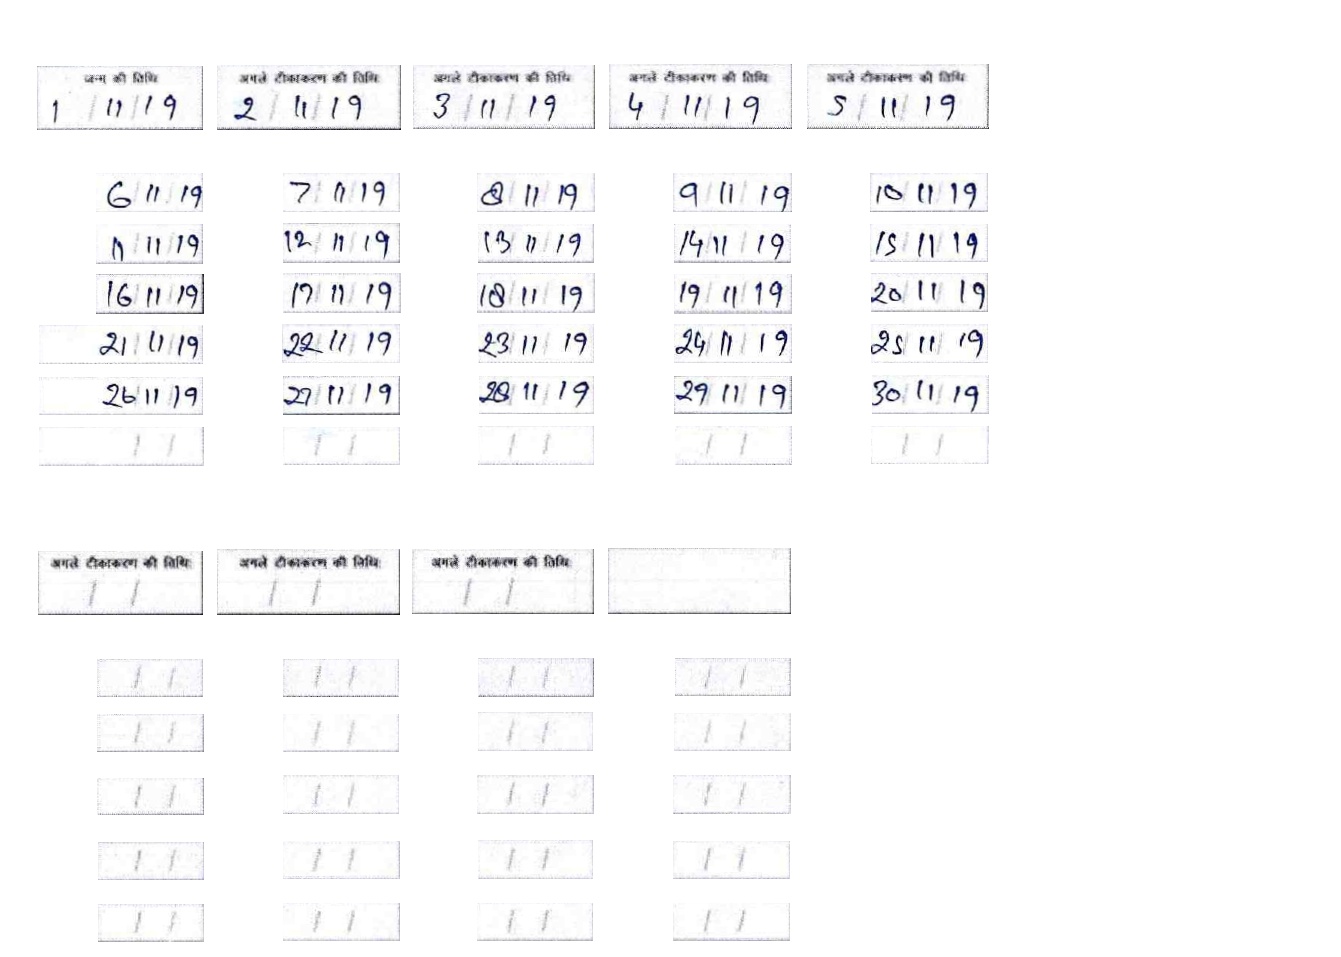 जन्म की तिथि अगले टीकाकरण की तिथि अगले टीकाकरण की तिथि अगले टीकाकरण की तिथि अगले टीकाकरण की तिथि
1/11/19 2/11/19 3/11/19 4/11/19 5/11/19
6/11/19 7/11/19 8/11/19 9/11/19 10/11/19
11/11/19 12/11/19 13/11/19 14/11/19 15/11/19
16/11/19 17/11/19 18/11/19 19/11/19 20/11/19
21/11/19 22/11/19 23/11/19 24/11/19 25/11/19
26/11/19 27/11/19 28/11/19 29/11/19 30/11/19
/ / / / / / / / / /
अगले टीकाकरण की तिथि: अगले टीकाकरण की तिथि: अगले टीकाकरण की तिथि:
/ / / / / /
/ / / / / / / /
/ / / / / / / /
/ / / / / / / /
/ / / / / / / /
/ / / / / / / /